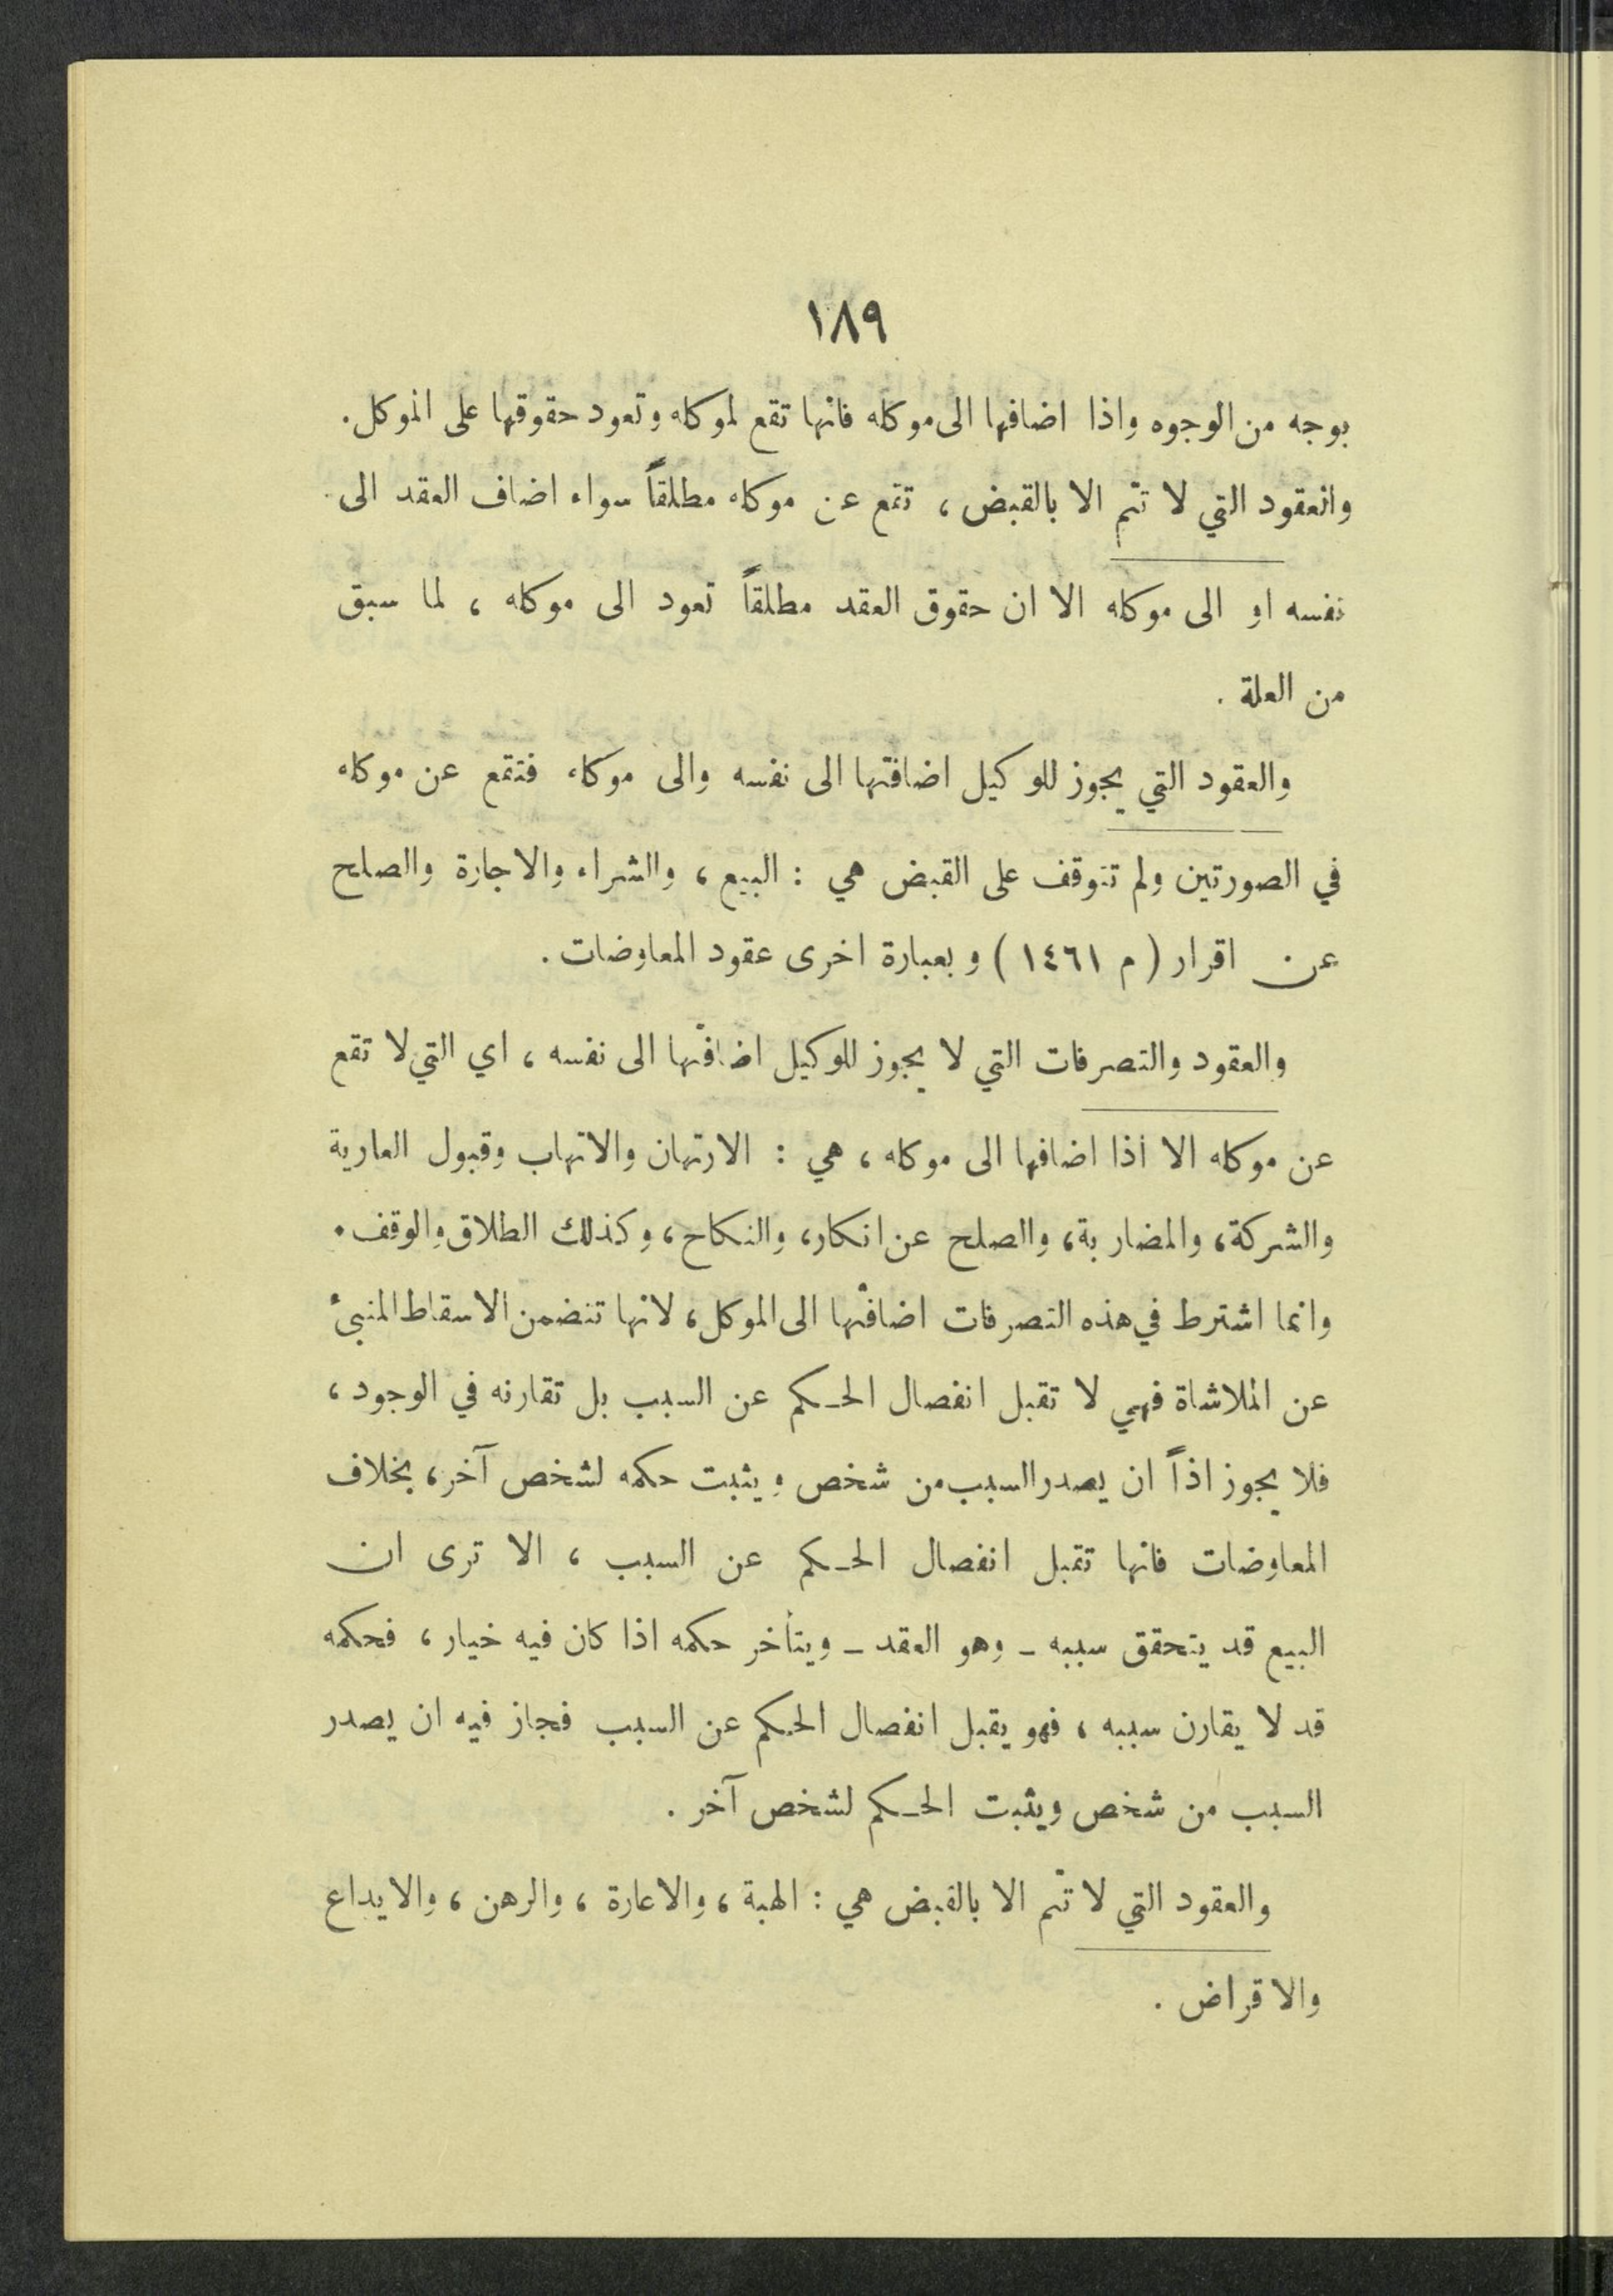 ١٨٩
بوجه من الوجوه واذا اضافها الى موكله فانها تقع لموكله وتعود حقوقها على الموكل.
والعقود التي لا تتم الا بالقبض ، تقع عن موكله مطلقاً سواء اضاف العقد الى
نفسه او الى موكله الا ان حقوق العقد مطلقاً تعود الى موكله ، لما سبق
من العلة .
والعقود التي يجوز للوكيل اضافتها الى نفسه والى موكله فتقع عن موكله
في الصورتين ولم تتوقف على القبض هي : البيع ، والشراء والاجارة والصلح
عن اقرار ( م ١٤٦١ ) وبعبارة اخرى عقود المعاوضات .
والعقود والتصرفات التي لا يجوز للوكيل اضافتها الى نفسه ، اي التي لا تقع
عن موكله الا اذا اضافها الى موكله ، هي : الارتهان والاتهاب وقبول العارية
والشركة ، والمضاربة ، والصلح عن انكار ، والنكاح ، وكذلك الطلاق والوقف .
وانما اشترط في هذه التصرفات اضافتها الى الموكل ، لانها تتضمن الاسقاط المنبئ
عن الملاشاة فهي لا تقبل انفصال الحـكم عن السبب بل تقارنه في الوجود ،
فلا يجوز اذاً ان يصدر السبب من شخص ويثبت حكمه لشخص آخر ، بخلاف
المعاوضات فانها تقبل انفصال الحـكم عن السبب ، الا ترى ان
البيع قد يتحقق سببه ـ وهو العقد ـ ويتأخر حكمه اذا كان فيه خيار ، فحكمه
قد لا يقارن سببه ، فهو يقبل انفصال الحكم عن السبب فجاز فيه ان يصدر
السبب من شخص ويثبت الحـكم لشخص آخر .
والعقود التي لا تتم الا بالقبض هي : الهبة ، والاعارة ، والرهن ، والايداع
والاقراض .